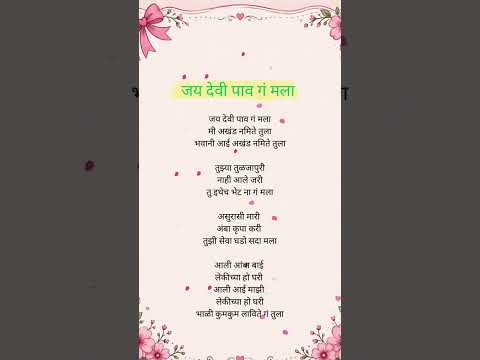 जय देवी पाव गं मला
जय देवी पाव गं मला
मी अखंड नमिते तुला
भवानी आई अखंड नमिते तुला
तुझ्या तुळजापुरी
नाही आले जरी
तु इथेच भेट ना गं मला
असुरासी मारी
अंबा कृपा करी
तुझी सेवा घडो सदा मला
आली आंबा बाई
लेकीच्या हो घरी
आली आई माझी
लेकीच्या हो घरी
भाळी कुमकुम लाविते गं तुला